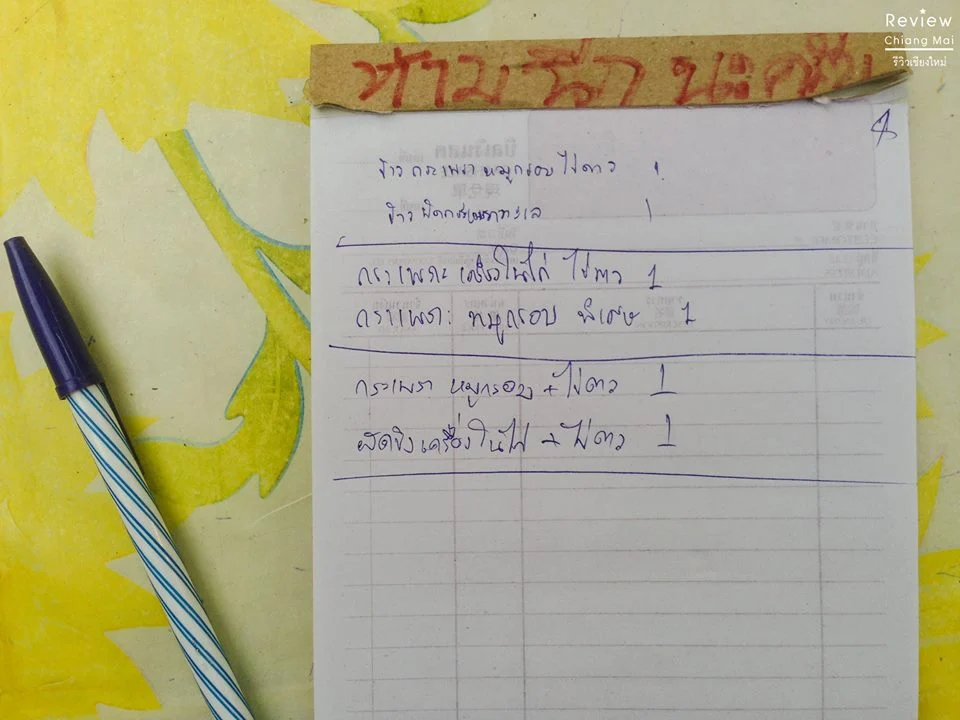 Review
Chiang Mai
รีวิวเชียงใหม่
ห้ามฉีก นะครับ
ข้าว กระเพรา หมูกรอบ ไข่ดาว 1
ข้าว ผัดกระเพราทะเล 1
กระเพาะ เครื่องในไก่ ไข่ดาว 1
กระเพาะ หมูกรอบ พิเศษ 1
กระเพรา หมูกรอบ + ไข่ดาว 1
ผัดขิงเครื่องในไก่ + ไข่ดาว 1